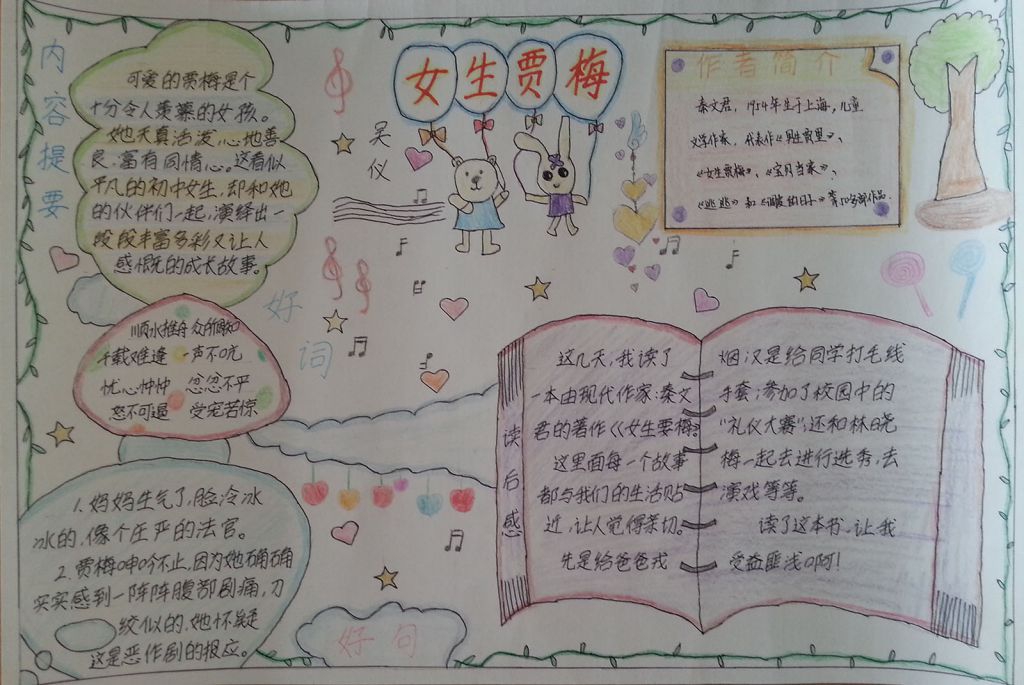 女生贾梅
吴仪
内容提要
可爱的贾梅是个
十分令人羡慕的女孩。
她天真活泼，心地善
良、富有同情心。这看似
平凡的初中女生，却和她
的伙伴们一起，演绎出一
段段丰富多彩又让人
感慨的成长故事。
作者简介
秦文君，1954年生于上海，儿童
文学作家，代表作《男生贾里》、
《女生贾梅》、《宝贝当家》、
《逃逃》和《调皮的日子》等50多部作品。
好词
顺水推舟 众所周知
千载难逢 一声不吭
忧心忡忡 忿忿不平
怒不可遏 受宠若惊
1.妈妈生气了，脸冷冰
冰的，像个庄严的法官。
2.贾梅呻吟不止，因为她确确
实实感到一阵阵腹部剧痛，刀
绞似的，她怀疑
这是恶作剧的报应。
好句
读后感
这几天，我读了
一本由现代作家：秦文
君的著作《女生要梅》。
这里面每一个故事
都与我们的生活贴
近，让人觉得亲切。
先是给爸爸戒
烟，汉是给同学打毛线
手套；参加了校园中的
“礼仪大赛”；还和林晓
梅一起去进行选秀，去
演戏等等。
读了这本书，让我
受益匪浅啊！